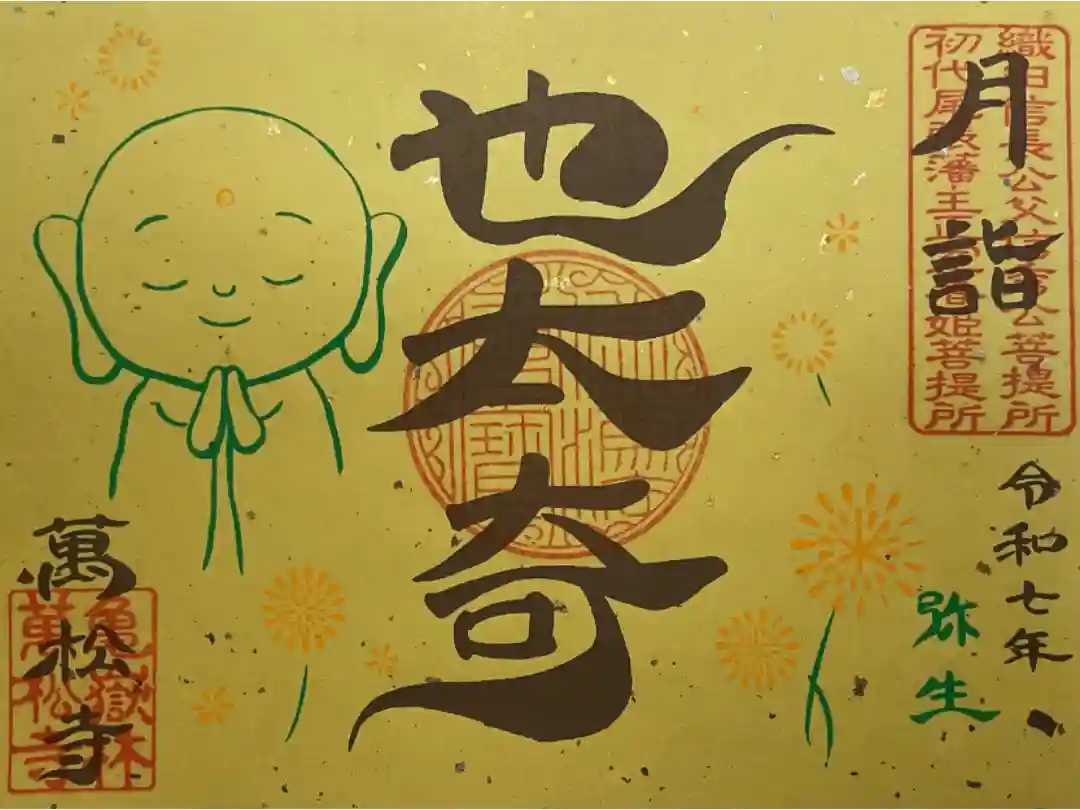 月詣
織田信長公父信秀公菩提所
初代尾張藩主正室春姫菩提所
令和七年
弥生
也太奇
萬松寺
亀嶽林
萬松寺